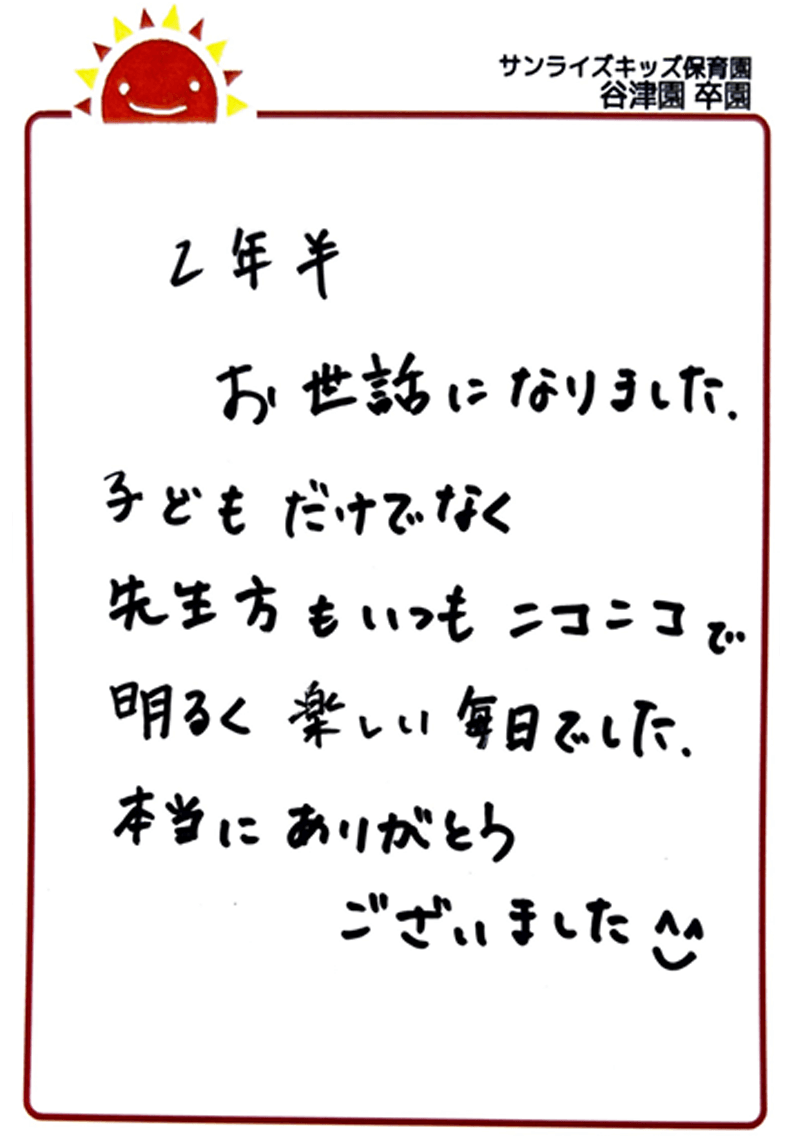 サンライズキッズ保育園
谷津園 卒園
2年半
お世話になりました.
子どもだけでなく
先生方もいつもニコニコで
明るく楽しい毎日でした.
本当にありがとう
ございました